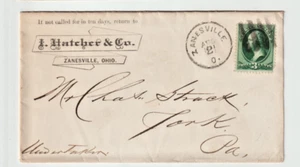 If not called for in ten days, return to
J. Hatcher & Co.
ZANESVILLE, OHIO.
ZANESVILLE
21
O.
Mr Chas Strack,
York
Pa.
Undertaker